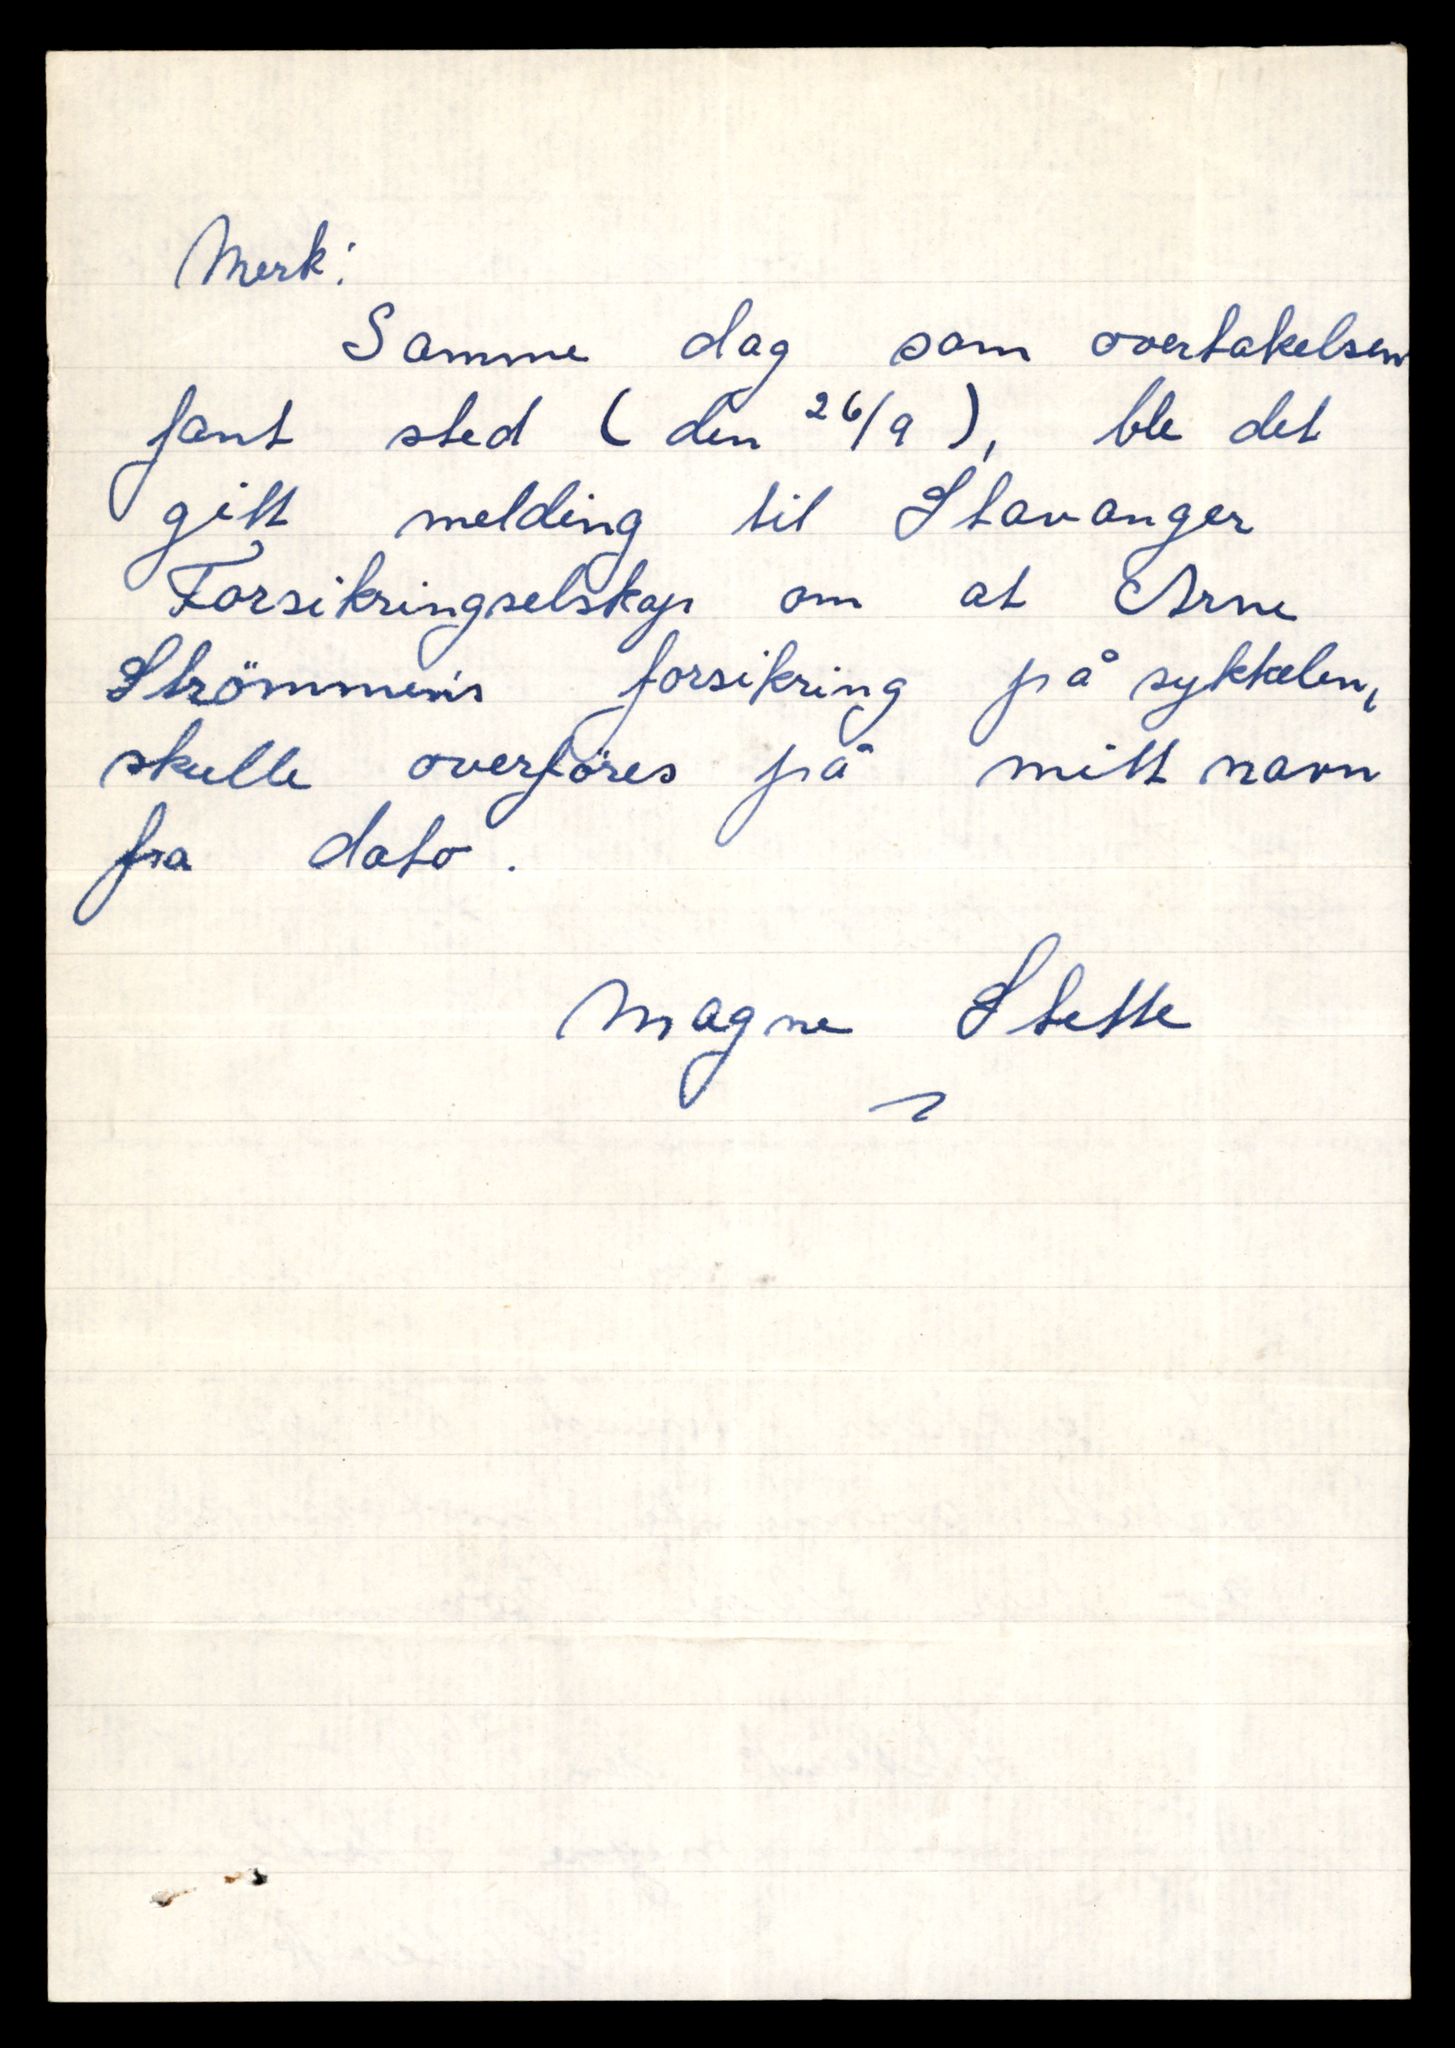 Merk:
Samme dag som overtakelsen
fant sted (den 26/9), ble det
gitt melding til Stavanger
Forsikringselskap om at Arne
Strömmen's forsikring på sykkelen,
skulle overföres på mitt navn
fra dato.
Magne Stette